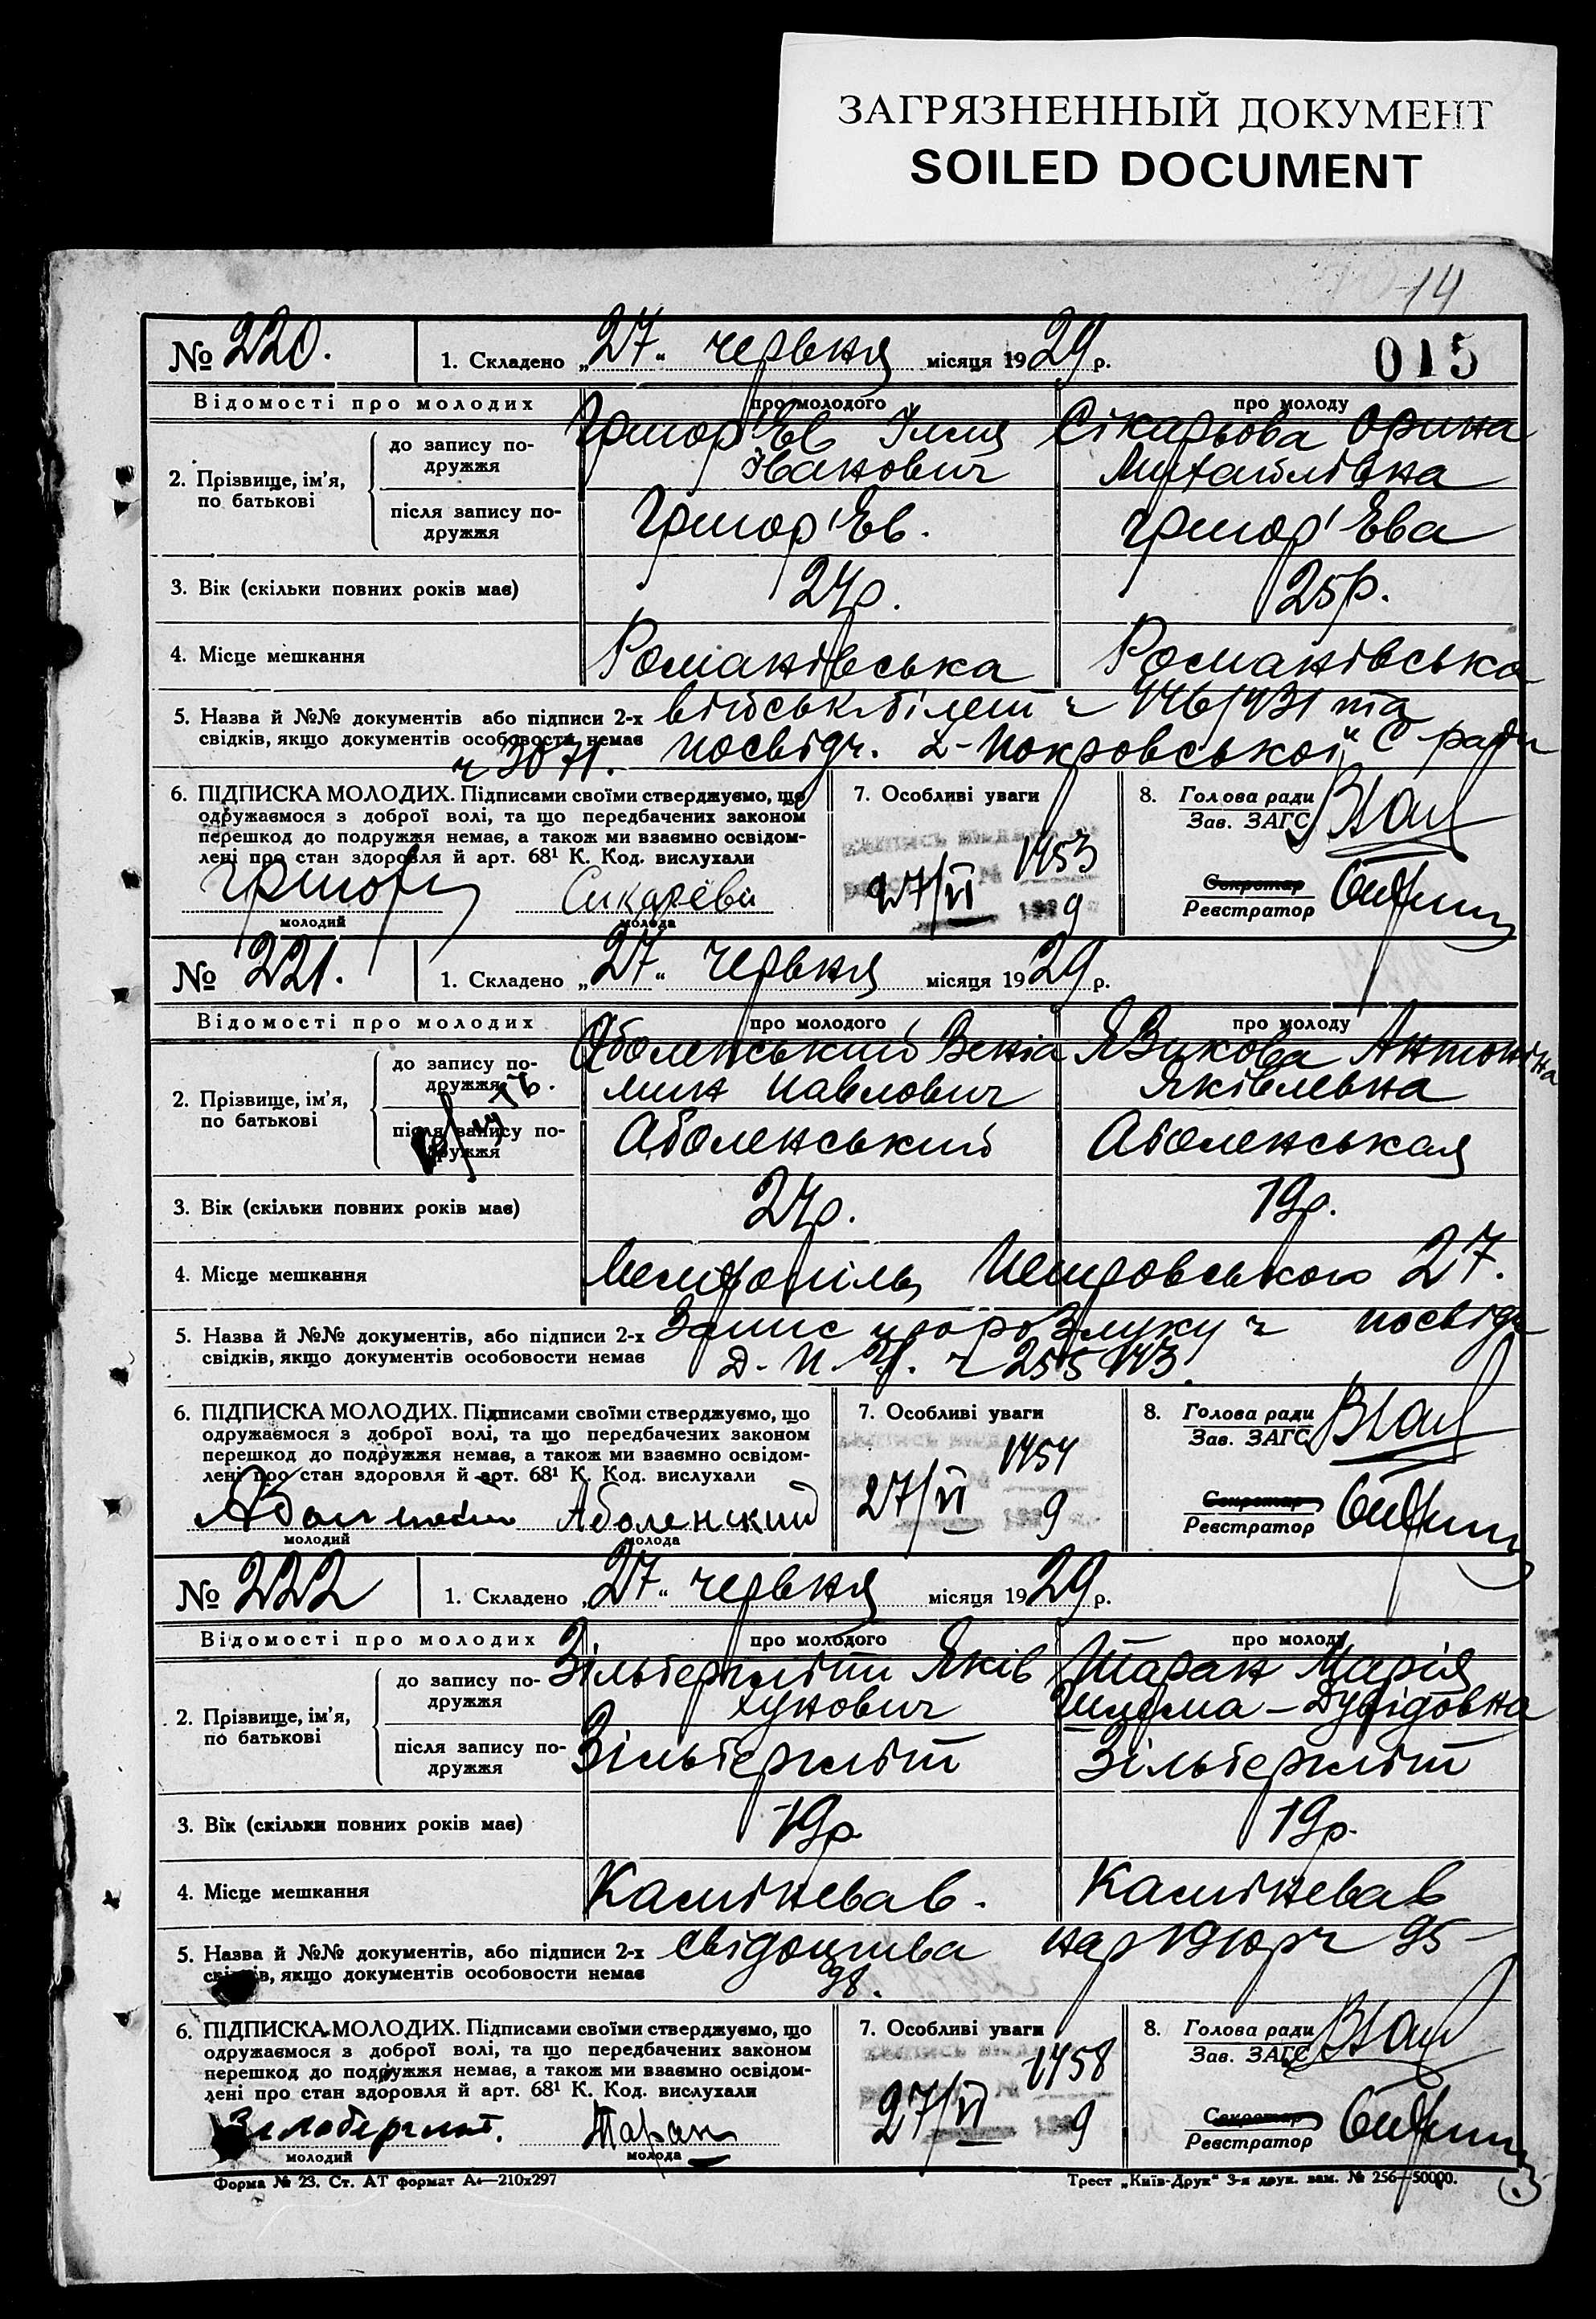 ЗАГРЯЗНЕННЫЙ ДОКУМЕНТ
SOILED DOCUMENT
14
№ 220. 1. Складено „27“ червня місяця 1929 р. 015
Відомості про молодих про молодого про молоду
2. Прізвище, ім'я, по батькові
до запису подружжя Григор'Ев Ілля Іванович Сікарьова Орина Михайлівна
після запису подружжя Григор'Ев. Григор'Ева
3. Вік (скільки повних років має) 24р. 25р.
4. Місце мешкання Романівська Романівська
5. Назва й №№ документів або підписи 2-х військ білет ч 446/431 та
свідків, якщо документів особовости немає посвідч. 2-Покровської С ради
ч 3071.
6. ПІДПИСКА МОЛОДИХ. Підписами своїми стверджуємо, що
одружаємося з доброї волі, та що передбачених законом
перешкод до подружжя немає, а також ми взаємно освідом-
лені про стан здоровля й арт. 68¹ К. Код. вислухали
молодий Сикарёва молода
7. Особливі уваги
1453
27/VI 1929
8. Голова ради
Зав. ЗАГС
Секретар
Реєстратор
№ 221. 1. Складено „27“ червня місяця 1929 р.
Відомості про молодих про молодого про молоду
2. Прізвище, ім'я, по батькові
до запису подружжя Аболенський Веніамин Павлович ЯЗикова Антоніна Яківлевна
після запису подружжя Аболенський Аболенськая
3. Вік (скільки повних років має) 24р. 19р.
4. Місце мешкання Мелітопіль, Петровського 27.
5. Назва й №№ документів, або підписи 2-х Запис про розлуку ч посвідч
свідків, якщо документів особовости немає Д. П. У. ч 255443.
6. ПІДПИСКА МОЛОДИХ. Підписами своїми стверджуємо, що
одружаємося з доброї волі, та що передбачених законом
перешкод до подружжя немає, а також ми взаємно освідом-
лені про стан здоровля й арт. 68¹ К. Код. вислухали
молодий Аболенский молода
7. Особливі уваги
1454
27/VI 1929
8. Голова ради
Зав. ЗАГС
Секретар
Реєстратор
№ 222 1. Складено „27“ червня місяця 1929 р.
Відомості про молодих про молодого про молоду
2. Прізвище, ім'я, по батькові
до запису подружжя Зільберміт Яків Таран Марія
після запису подружжя Зільберміт Зільберміт
3. Вік (скільки повних років має) 19р. 19р.
4. Місце мешкання Камінева 6. Камінева 6
5. Назва й №№ документів, або підписи 2-х свідоцтва 95 –
свідків, якщо документів особовости немає 98.
6. ПІДПИСКА МОЛОДИХ. Підписами своїми стверджуємо, що
одружаємося з доброї волі, та що передбачених законом
перешкод до подружжя немає, а також ми взаємно освідом-
лені про стан здоровля й арт. 68¹ К. Код. вислухали
молодий Таран молода
7. Особливі уваги
1458
27/VI 1929
8. Голова ради
Зав. ЗАГС
Секретар
Реєстратор
Форма № 23. Ст. АТ формат А₄—210х297 Трест „Київ-Друк“ 3-я друк. зам. № 256—50000.